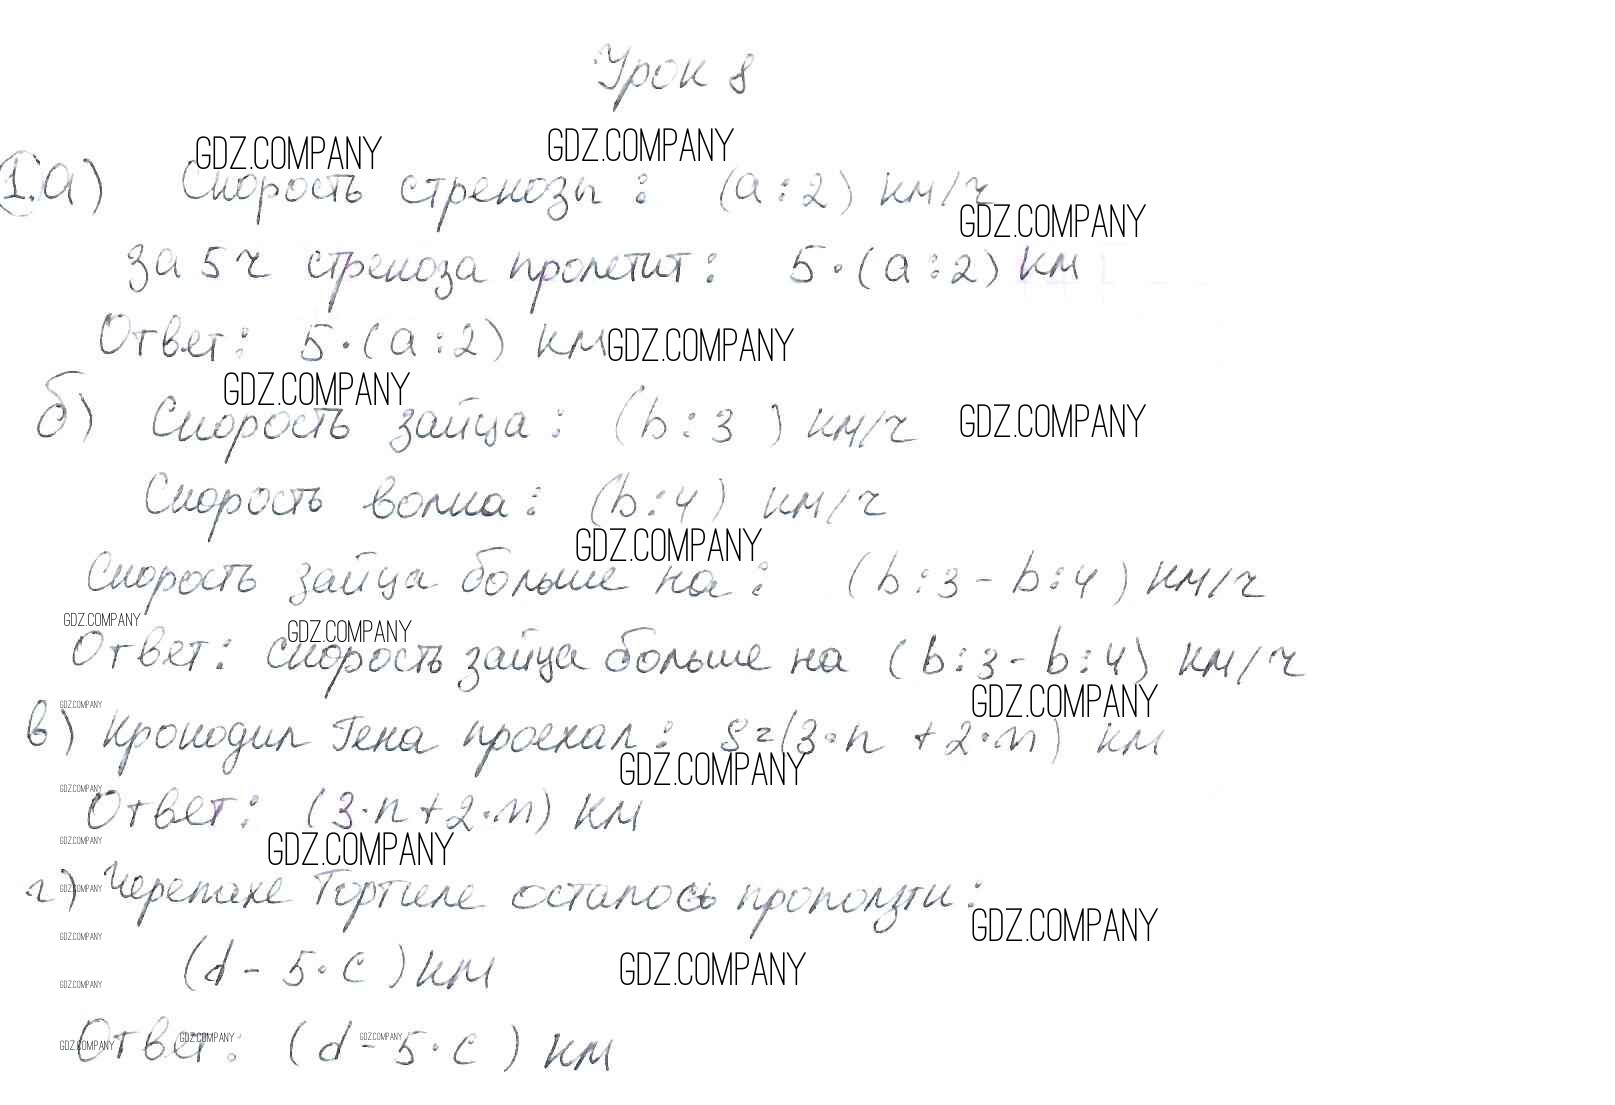 Урок 8
GDZ.COMPANY GDZ.COMPANY
1.а) Скорость стрекозы : (a:2) км/ч
GDZ.COMPANY
За 5 ч стрекоза пролетит : 5·(a:2) км
Ответ: 5·(a:2) км GDZ.COMPANY
GDZ.COMPANY
б) Скорость зайца : (b:3) км/ч GDZ.COMPANY
Скорость волка : (b:4) км/ч
GDZ.COMPANY
Скорость зайца больше на : (b:3 - b:4) км/ч
GDZ.COMPANY GDZ.COMPANY
Ответ: скорость зайца больше на (b:3 - b:4) км/ч
GDZ.COMPANY GDZ.COMPANY
в) Крокодил Гена проехал : S=(3·n + 2·m) км
GDZ.COMPANY
GDZ.COMPANY
Ответ: (3·n+2·m) км
GDZ.COMPANY GDZ.COMPANY
г) Черепахе Тортиле осталось проползти :
GDZ.COMPANY
GDZ.COMPANY GDZ.COMPANY
(d - 5·c) км GDZ.COMPANY
GDZ.COMPANY
Ответ: (d - 5·c) км
GDZ.COMPANY GDZ.COMPANY GDZ.COMPANY